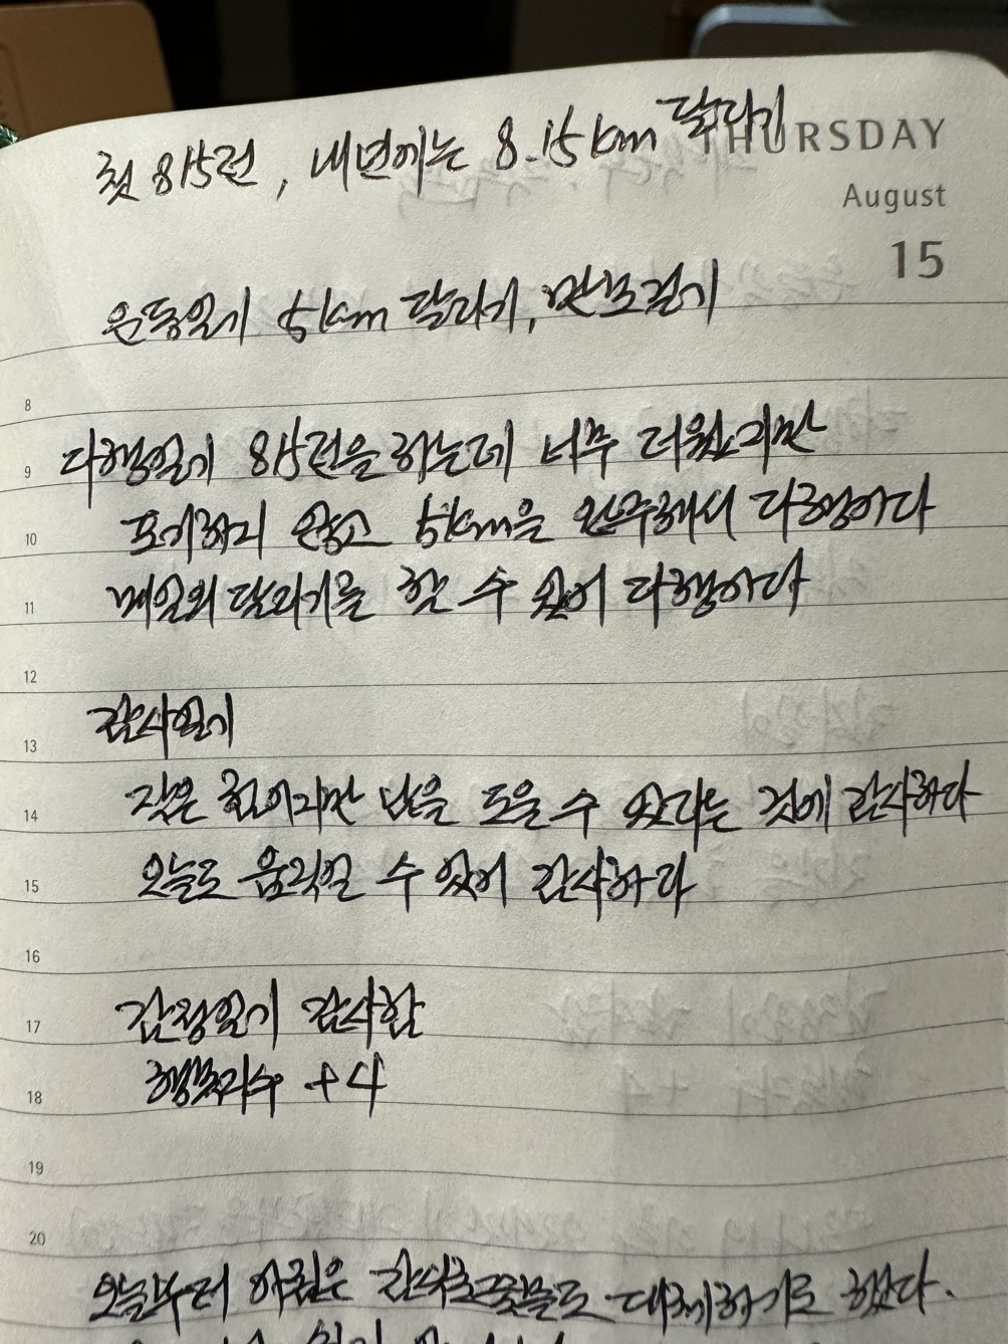 첫 815런, 내년에는 8.15km 달리기
THURSDAY
August
15
운동일기 5km 달리기, 만보걷기
8
9 다행일기 815런을 하는데 너무 더웠지만
10 포기하지 않고 5km을 완주해서 다행이다
11 매일의 달리기를 할 수 있어 다행이다
12
감사일기
13
14 작은 힘이지만 남을 도울 수 있다는 것에 감사하다
15 오늘도 움직일 수 있어 감사하다
16
17 감정일기 감사함
18 행복지수 +4
19
20
오늘부터 아침은 대체하기로 했다.